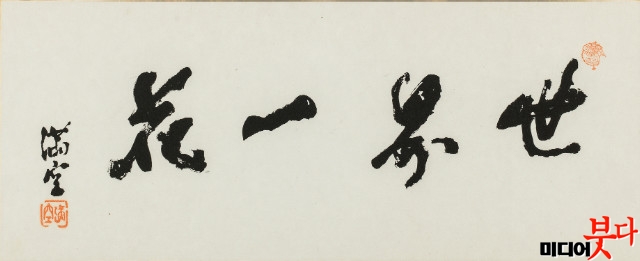 世界一花
滿空
미디어붓다